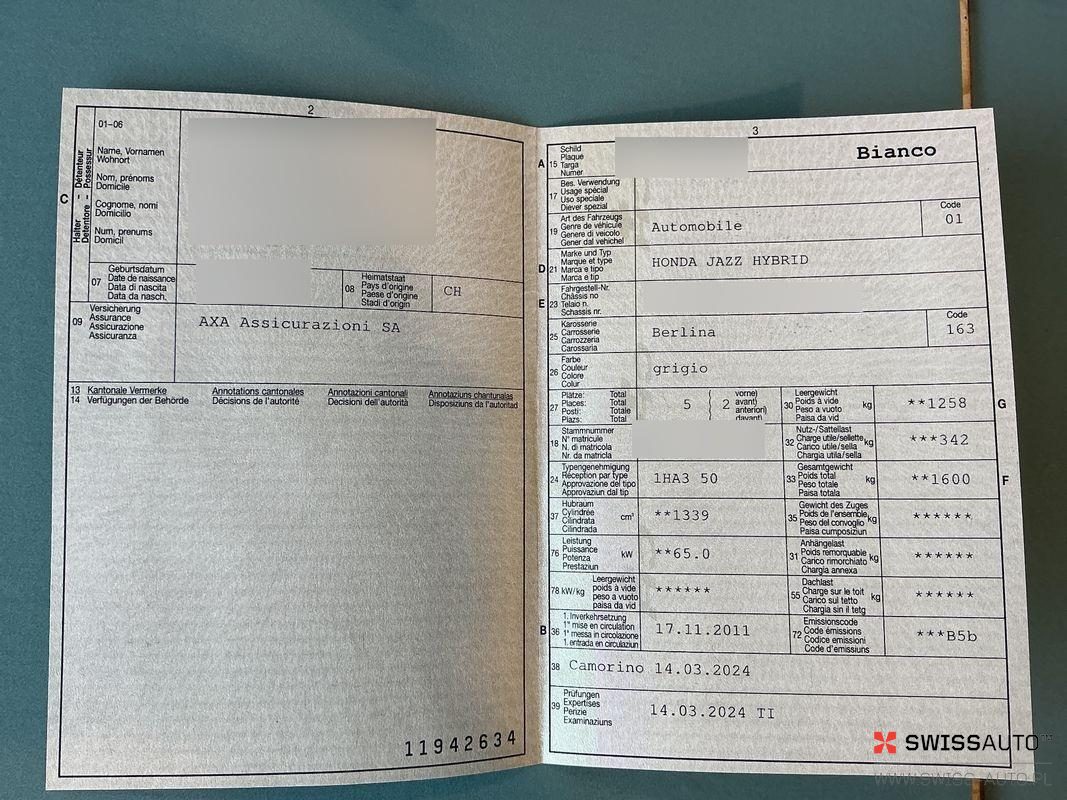 2
01-06
C
Halter - Détenteur
Detentore - Possessur
Name, Vornamen
Wohnort
Nom, prénoms
Domicile
Cognome, nomi
Domicilio
Num, prenums
Domicil
07
Geburtsdatum
Date de naissance
Data di nascita
Data da nasch.
08
Heimatstaat
Pays d'origine
Paese d'origine
Stadi d'origin
CH
09
Versicherung
Assurance
Assicurazione
Assicuranza
AXA Assicurazioni SA
13 Kantonale Vermerke Annotations cantonales Annotazioni cantonali Annotaziuns chantunalas
14 Verfügungen der Behörde Décisions de l'autorité Decisioni dell'autorità Disposiziuns da l'autoritad
11942634
3
A 15
Schild
Plaque
Targa
Numer
Bianco
17
Bes. Verwendung
Usage spécial
Uso speciale
Diever spezial
19
Art des Fahrzeugs
Genre de véhicule
Genere di veicolo
Gener dal vehichel
Automobile
Code
01
D 21
Marke und Typ
Marque et type
Marca e tipo
Marca e tip
HONDA JAZZ HYBRID
E 23
Fahrgestell-Nr.
Châssis no
Telaio n.
Schassis nr.
25
Karosserie
Carrosserie
Carrozzeria
Carossaria
Berlina
Code
163
26
Farbe
Couleur
Colore
Colur
grigio
27
Plätze: Total
Places: Total
Posti: Totale
Plazs: Total
5 ( 2
vorne)
avant)
anteriori)
davant)
30
Leergewicht
Poids à vide
Peso a vuoto
Paisa da vid
kg
**1258
G
18
Stammnummer
N° matricule
N. di matricola
Nr. da matricla
32
Nutz-/Sattellast
Charge utile/sellette
Carico utile/sella
Chargia utila/sella
kg
***342
24
Typengenehmigung
Réception par type
Approvazione del tipo
Approvaziun dal tip
1HA3 50
33
Gesamtgewicht
Poids total
Peso totale
Paisa totala
kg
**1600
F
37
Hubraum
Cylindrée
Cilindrata
Cilindrada
cm³
**1339
35
Gewicht des Zuges
Poids de l'ensemble
Peso del convoglio
Paisa cumposiziun
kg
******
76
Leistung
Puissance
Potenza
Prestaziun
kW
**65.0
31
Anhängelast
Poids remorquable
Carico rimorchiato
Chargia annexa
kg
******
78 kW/kg
Leergewicht
poids à vide
peso a vuoto
paisa da vid
******
55
Dachlast
Charge sur le toit
Carico sul tetto
Chargia sin il tetg
kg
******
B 36
1. Inverkehrsetzung
1re mise en circulation
1a messa in circolazione
1. entrada en circulaziun
17.11.2011
72
Emissionscode
Code émissions
Codice emissioni
Code d'emissiuns
***B5b
38 Camorino 14.03.2024
39
Prüfungen
Expertises
Perizie
Examinaziuns
14.03.2024 TI
SWISSAUTO
WWW.SWISS-AUTO.PL